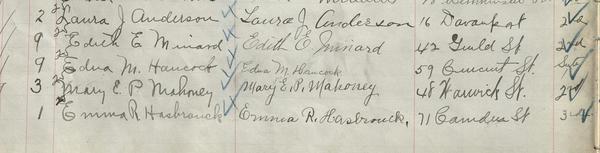 2 Laura J Anderson Laura J Anderson 16 Davenport 2nd
9 Edith E Minard Edith E. Minard 42 Guild St 2nd
9 Edna M. Hancock Edna M. Hancock 59 St.
3 Mary E. P. Mahoney Mary E. P. Mahoney 48 Warwick St. 2nd
1 Emma R Hasbrouck Emma R. Hasbrouck. 71 Camden St 3rd